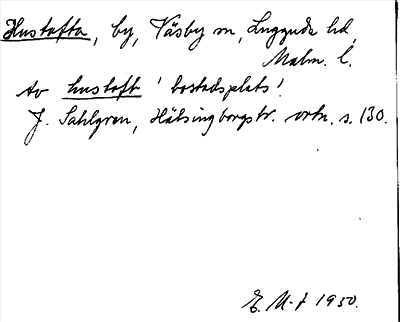 Hustofta, by, Väsby sn, Luggude hd,
Malm. l.
Av hustoft 'bostadsplats'.
J. Sahlgren, Hälsingborgstr. ortn. s. 130.
E. M-t 1950.